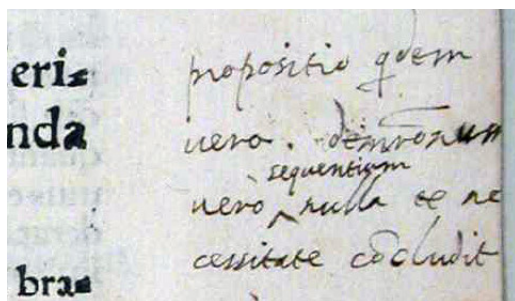 eri=
nda
bra=
propositio qdem
vera.
sequentium
vero nulla ex ne
cessitate cōcludit